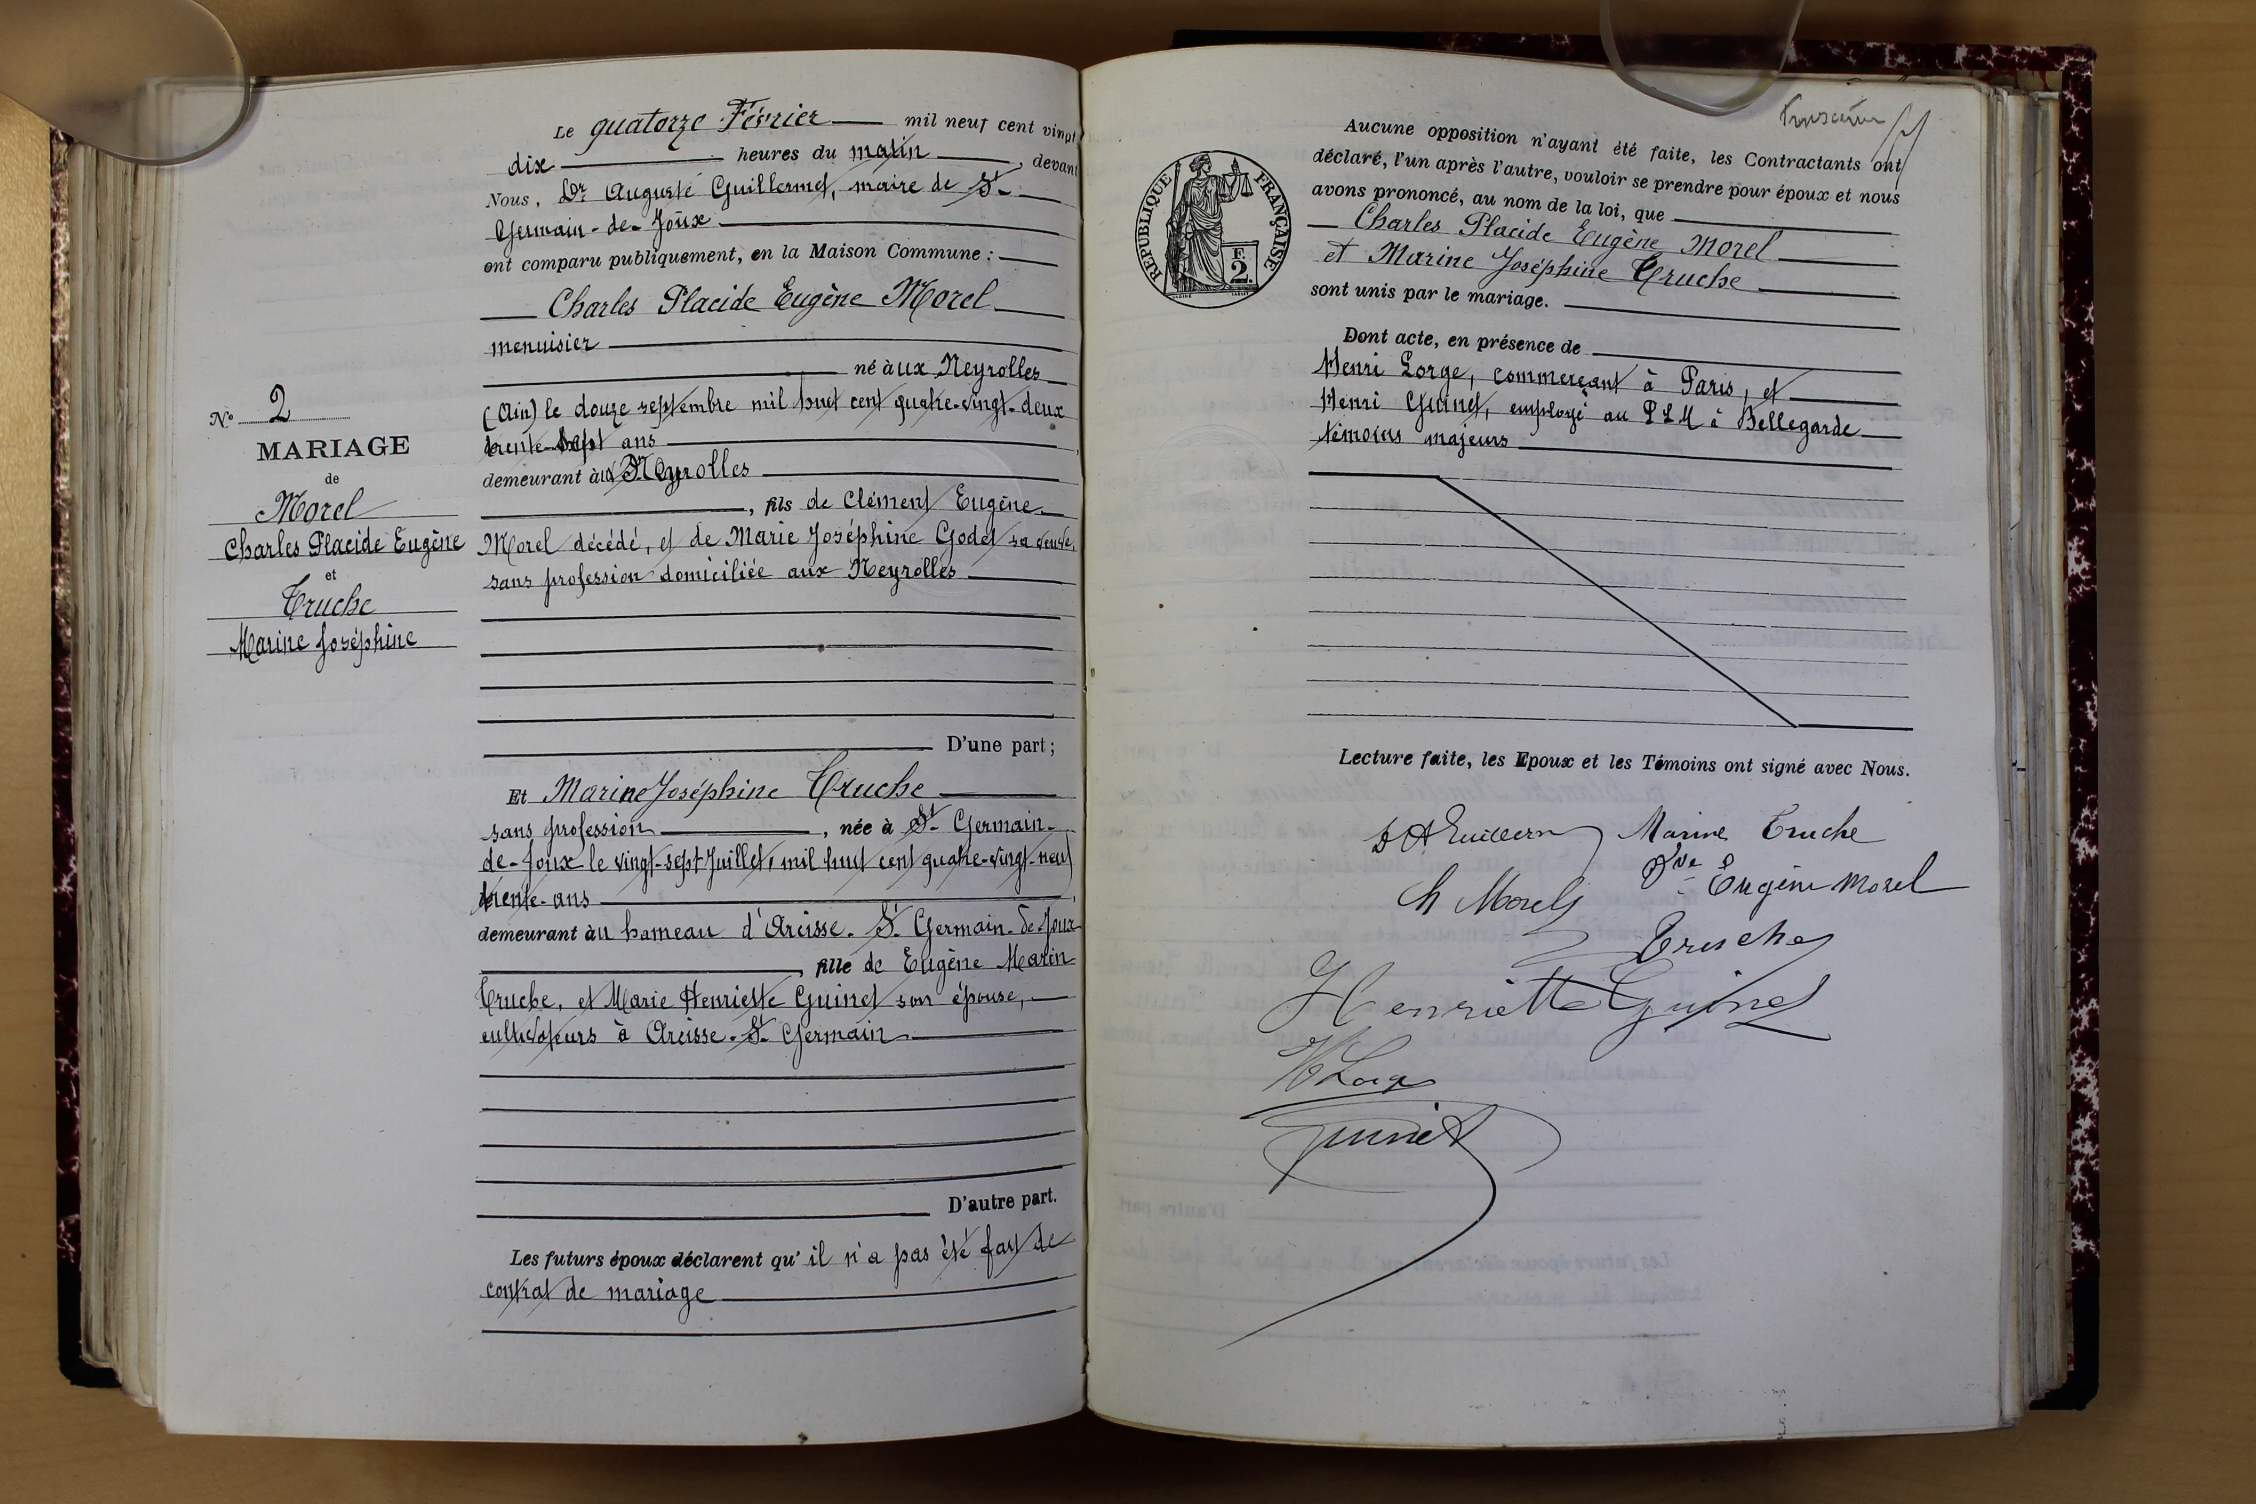 Le quatorze Février mil neuf cent vingt
dix heures du matin, devant
Nous, Dr Auguste Guillermet, maire de St-
Germain-de-Joux
ont comparu publiquement, en la Maison Commune :
Charles Placide Eugène Morel
menuisier
né aux Neyrolles
(Ain) le douze septembre mil huit cent quatre-vingt-deux
trente-sept ans
demeurant aux Neyrolles
, fils de Clément Eugène
Morel décédé, et de Marie Joséphine Godet sa veuve,
sans profession domiciliée aux Neyrolles
D'une part ;
No 2
MARIAGE
de
Morel
Charles Placide Eugène
et
Truche
Marine Joséphine
Et Marine Joséphine Truche
sans profession, née à St-Germain-
de-Joux le vingt-sept Juillet, mil huit cent quatre-vingt-neuf
trente-ans
demeurant au hameau d'Arcisse. St-Germain-de-Joux
, fille de Eugène Marin
Truche, et Marie Henriette Guinet son épouse,
cultivateurs à Arcisse. St-Germain
D'autre part.
Les futurs époux déclarent qu'il n'a pas été fait de
contrat de mariage
Aucune opposition n'ayant été faite, les Contractants ont
déclaré, l'un après l'autre, vouloir se prendre pour époux et nous
avons prononcé, au nom de la loi, que
Charles Placide Eugène Morel
et Marine Joséphine Truche
sont unis par le mariage.
RÉPUBLIQUE FRANÇAISE
E
2
Dont acte, en présence de
Henri Lorge, commerçant à Paris, et
Henri Guinet, employé au PLM à Bellegarde
témoins majeurs
Lecture faite, les Epoux et les Témoins ont signé avec Nous.
Marine Truche
Ch Morel
Vve Eugène Morel
Truche
Henriette Guinet
H Lorge
Guinet